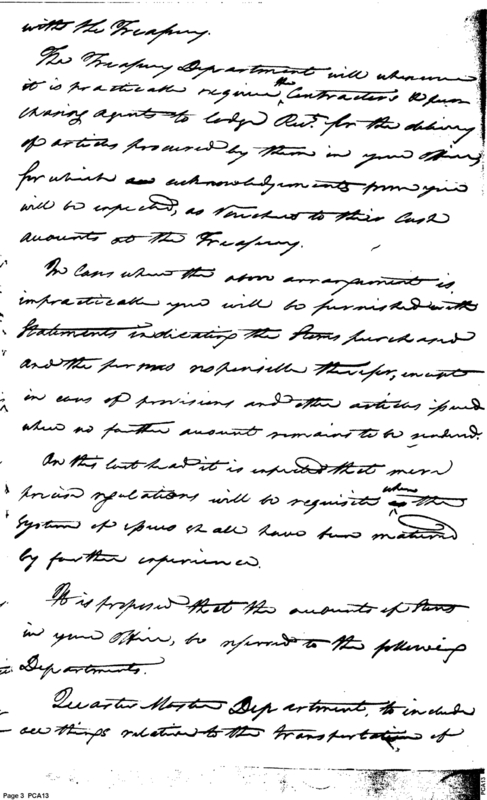 with the Treasury.
The Treasury Department will whenever
it is practicable require the Contractors & pur-
chasing agents to lodge Rects. for the delivery
of articles procured by them in your Office,
for which acknowledgements from you
will be expected, as Vouchers to their Cash
accounts at the Treasury.
In Cases where the above arrangement is
impracticable you will be furnished with
Statements indicating the Stores purchased
and the persons responsible therefor, except
in cases of provisions and other articles issued
where no further account remains to be rendered.
On this last head it is expected that more
precise regulations will be requisite when the
System of issues shall have been matured
by further experience.
It is proposed that the accounts of Stores
in your Office, be referred to the following
Departments.
Quarter Master Department, to include
all things relative to the transportation of
Page 3 PCA13
PCA13